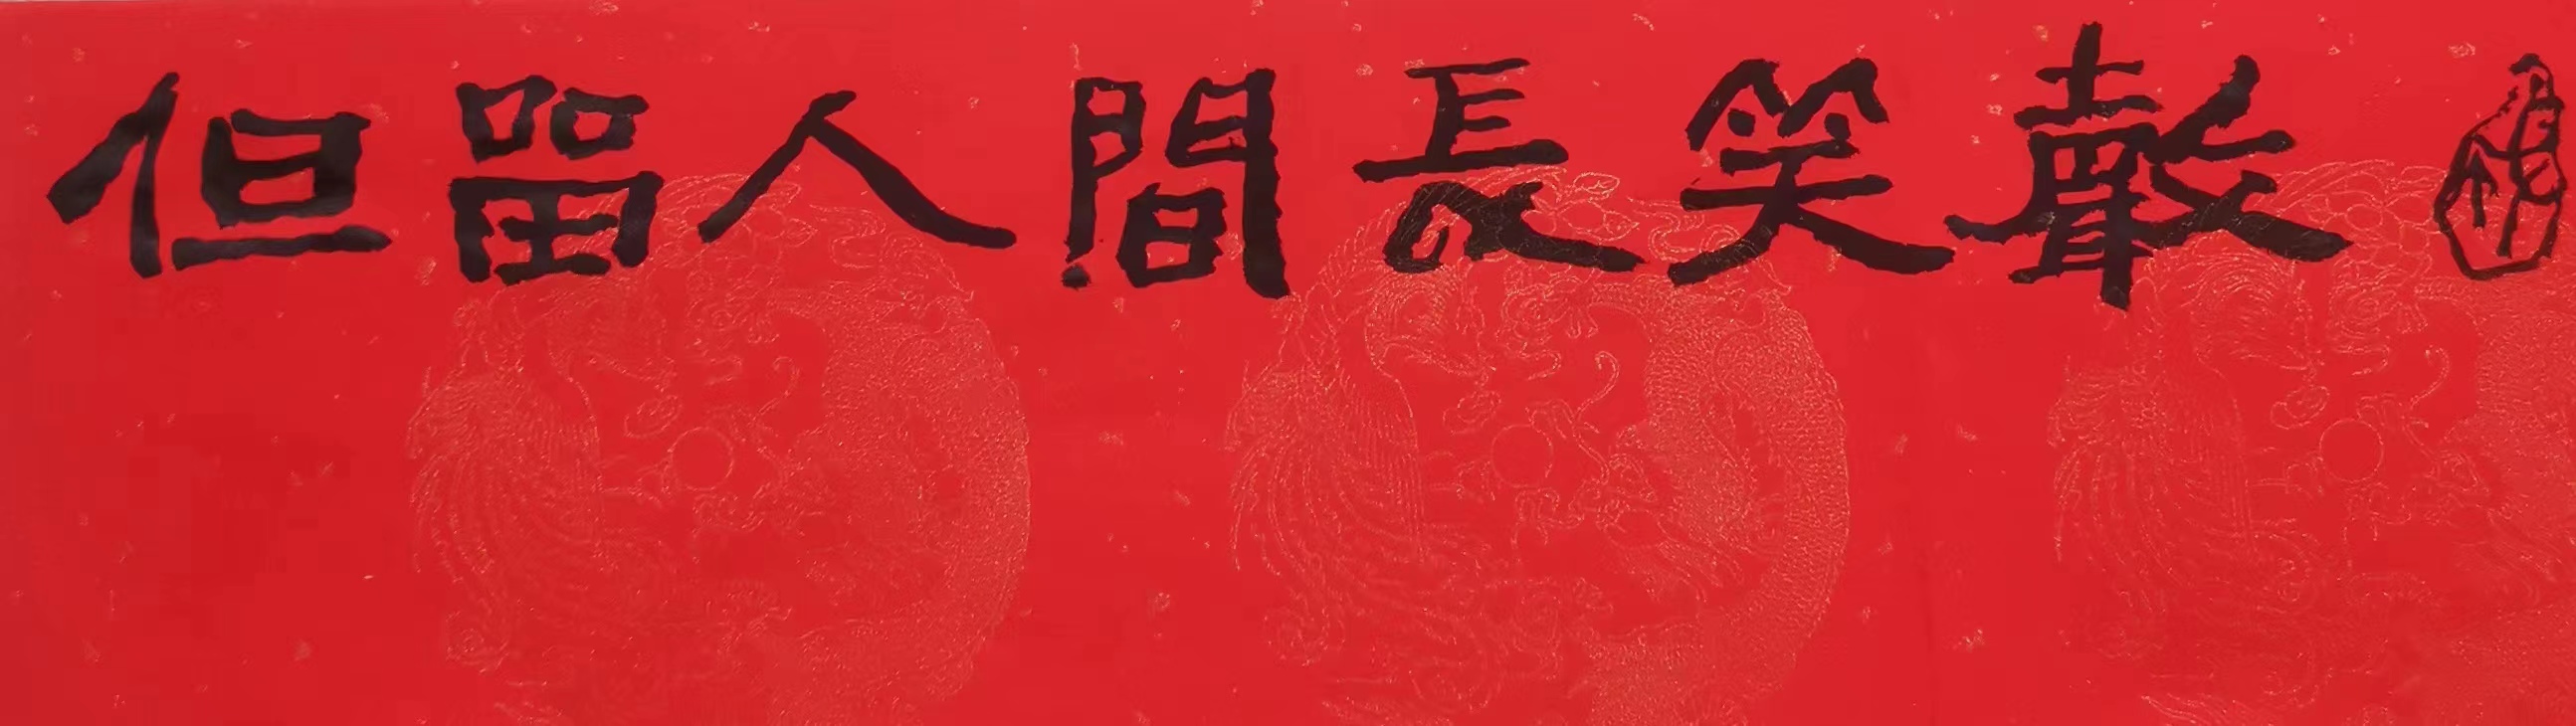 但留人間長笑聲